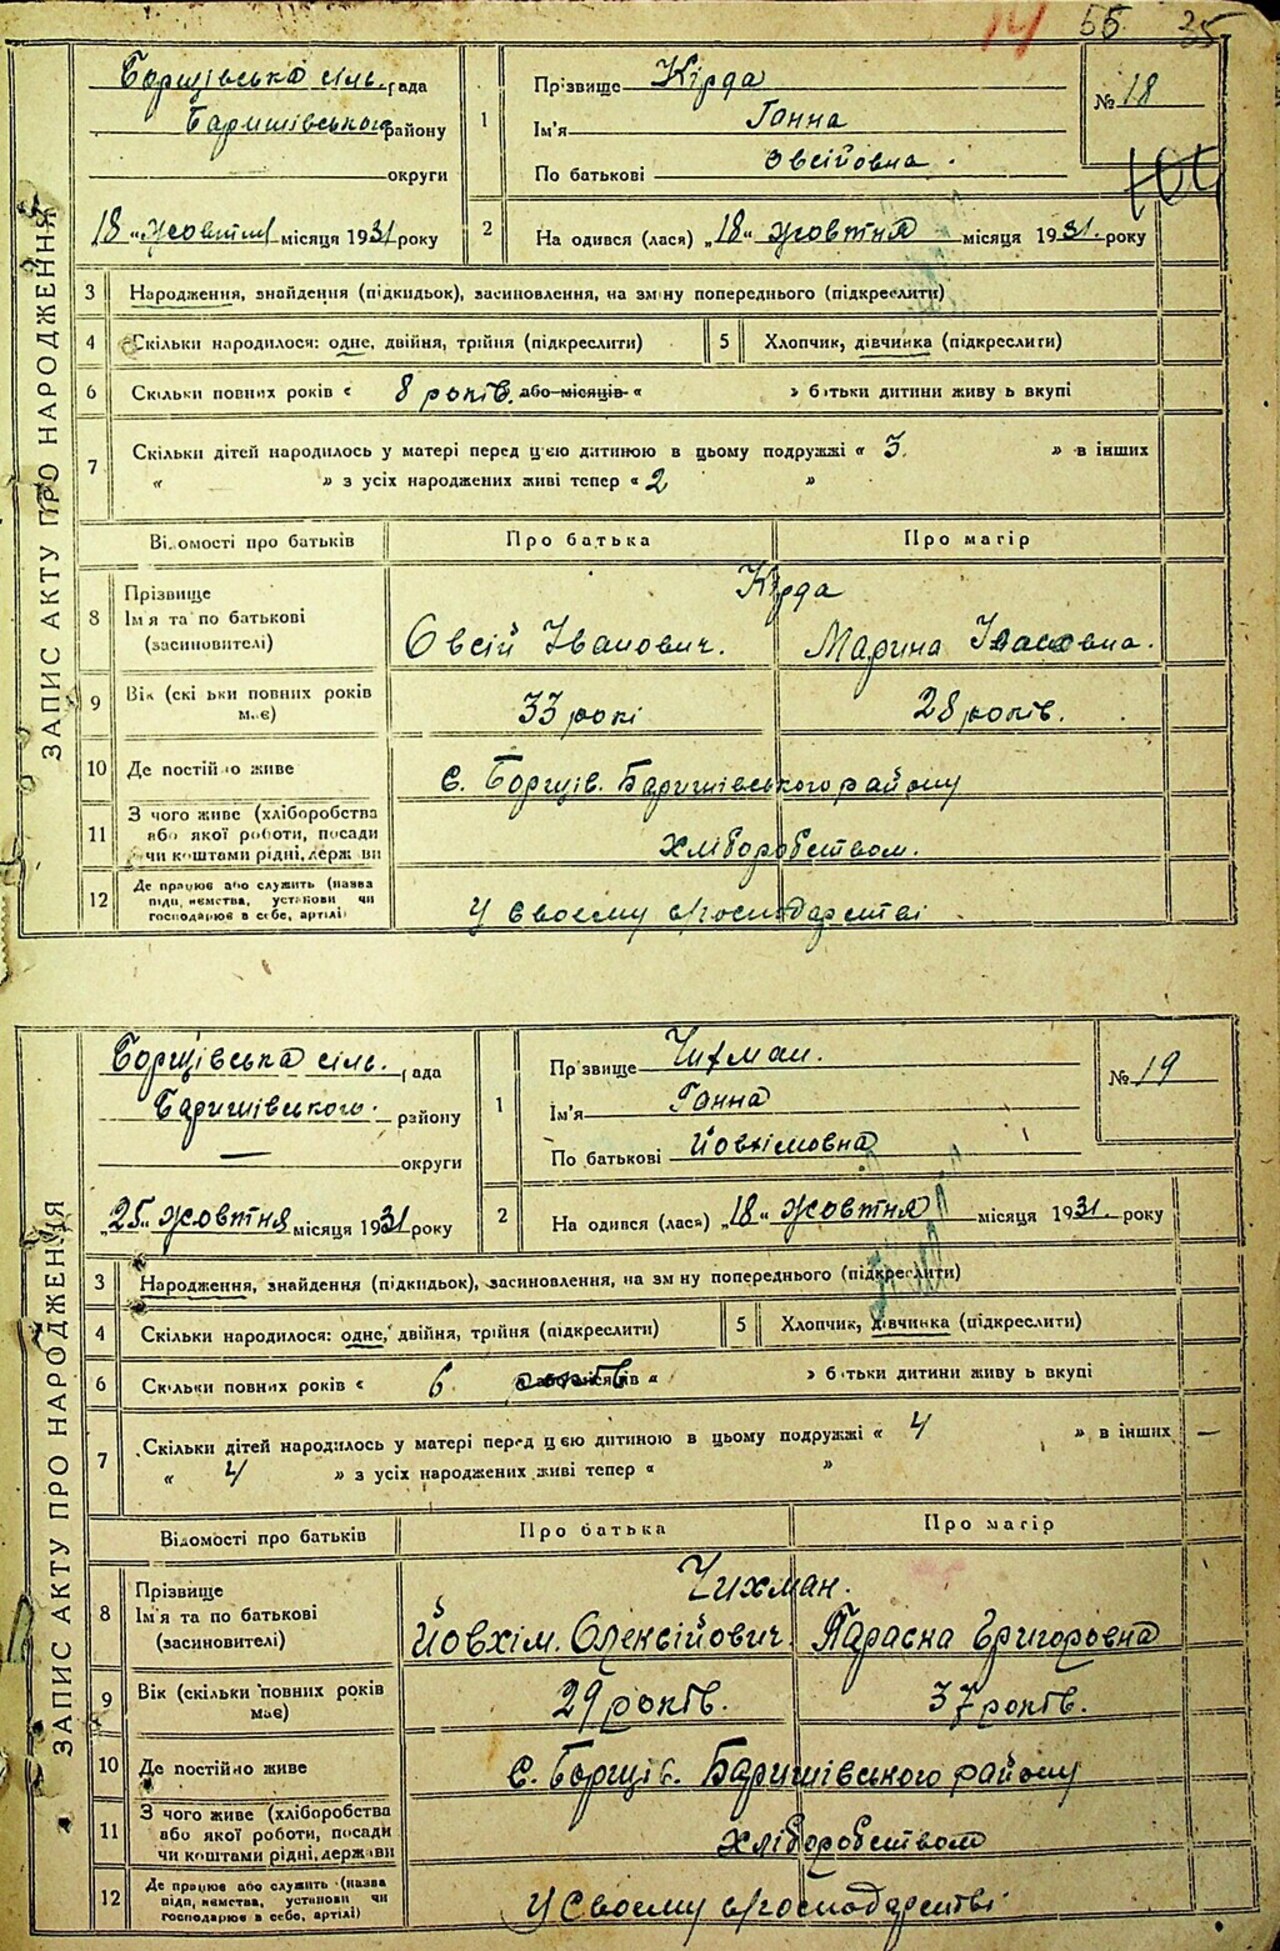 14 55 35
ЗАПИС АКТУ ПРО НАРОДЖЕННЯ
Борщівська сіль. рада
Баришівського району
округи
18 "жовтня місяця 1931 року
1
Прізвище Кірда
Ім'я Ганна
По батькові Овсійовна.
№ 18
2 На одився (лася) „18" жовтня місяця 1931. року
3 Народження, знайдення (підкидьок), засиновлення, на зміну попереднього (підкреслити)
4 Скільки народилося: одне, двійня, трійня (підкреслити)
5 Хлопчик, дівчинка (підкреслити)
6 Скільки повних років « 8 років. або місяців « » батьки дитини живуть вкупі
7 Скільки дітей народилось у матері перед цією дитиною в цьому подружжі « 3. » в інших
« » з усіх народжених живі тепер « 2 »
Відомості про батьків Про батька Про матір
8 Прізвище
Ім'я та по батькові
(засиновителі)
Кірда
Овсій Іванович. Марина Івановна.
9 Вік (скільки повних років має)
33 рокі 28 років.
10 Де постійно живе
с. Борщів. Баришівського району
11 З чого живе (хліборобства
або якої роботи, посади
чи коштами рідні, держави
хліборобством.
12 Де працює або служить (назва
підприємства, установи чи
господарює в себе, артілі)
У своєму господарстві
ЗАПИС АКТУ ПРО НАРОДЖЕННЯ
Борщівська сіль. рада
Баришівського. району
— округи
„25" жовтня місяця 1931 року
1
Прізвище Чихман.
Ім'я Ганна
По батькові Йовхімовна
№ 19
2 На одився (лася) „18" жовтня місяця 1931. року
3 Народження, знайдення (підкидьок), засиновлення, на зміну попереднього (підкреслити)
4 Скільки народилося: одне, двійня, трійня (підкреслити)
5 Хлопчик, дівчинка (підкреслити)
6 Скільки повних років « 6 або місяців « » батьки дитини живуть вкупі
7 Скільки дітей народилось у матері перед цією дитиною в цьому подружжі « 4 » в інших —
« 4 » з усіх народжених живі тепер « »
Відомості про батьків Про батька Про матір
8 Прізвище
Ім'я та по батькові
(засиновителі)
Чихман.
Йовхім. Олексійович Параска Григоровна
9 Вік (скільки повних років має)
29 років. 37 років.
10 Де постійно живе
с. Борщів. Баришівського району
11 З чого живе (хліборобства
або якої роботи, посади
чи коштами рідні, держави
хліборобством
12 Де працює або служить (назва
підприємства, установи чи
господарює в себе, артілі)
У своєму господарстві